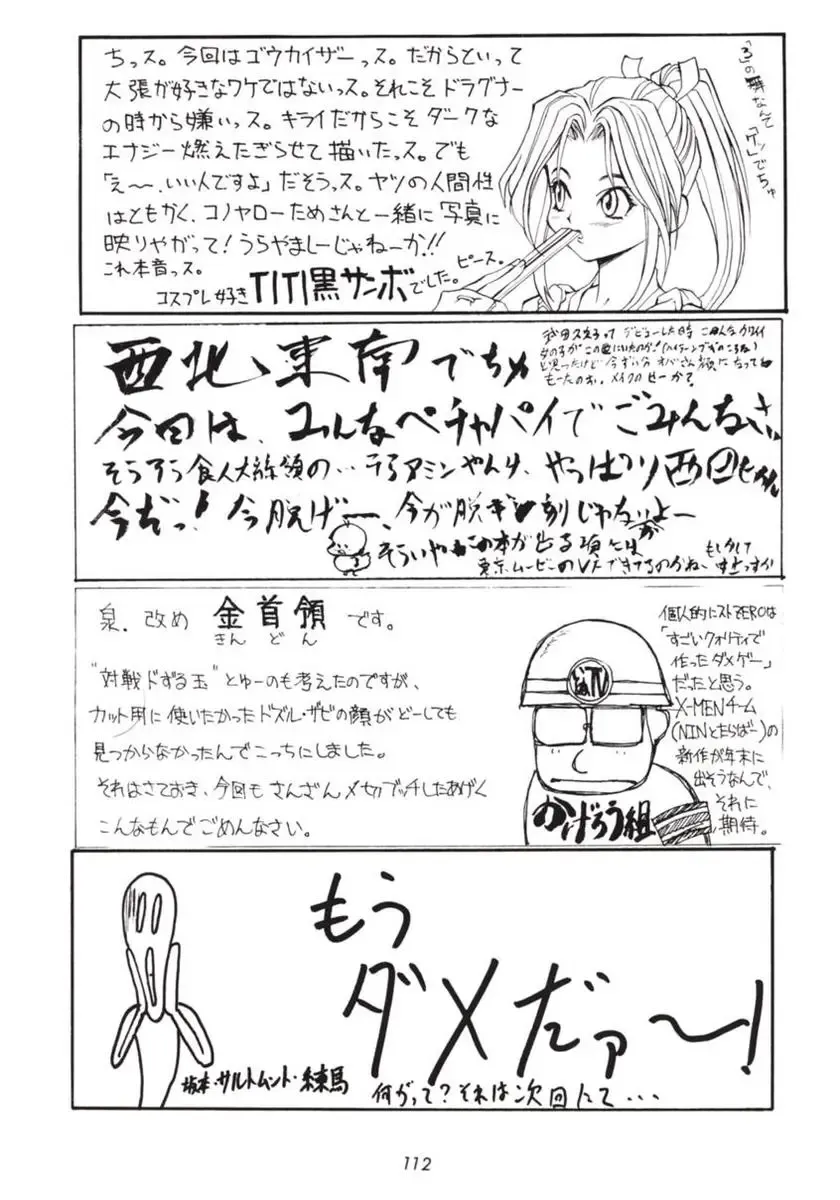 ちっス。今回はゴウカイザーっス。だからといって
大張が好きなワケではないっス。それこそドラグナー
の時から嫌いっス。キライだからこそダークな
エナジー燃えたぎらせて描いたっス。でも
「え〜、いい人ですよ」だそうっス。ヤツの人間性
はともかく、コノヤローためさんと一緒に写真に
映りやがって!うらやましーじゃねーか!!
これ本音っス。
コスプレ好き TITI黒サンボでした。ピース。
「3」の舞なんぞ
「ケッ」でちゅ
西北、東南でちゅ
今回は、みんなペチャパイでごみんなさい
そうろう食人大統領の…
やっぱり西田ちゃん
今だっ!今脱げー、今が脱ぎ刻じゃないかよー
そういやーこの本が出る頃には
東京ムービーのVFできてるのかねー
もしかして
デビューした時
メイクのせーか?
泉.改め 金首領です。
きん どん
"対戦ドずる玉"とゅーのも考えたのですが、
カット用に使いたかったドズル・ザビの顔がどーしても
見つからなかったんでこっちにしました。
それはさておき、今回もさんざんメセルブッチしたあげく
こんなもんでごめんなさい。
TV
かげろう組
個人的にストZEROは
「すごいクォリティで
作ったダメゲー」
だったと思う。
X-MENチーム
(NINとたらばー)の
新作が年末に
出そうなんで、
それに
期待。
もう
ダメだァ〜!
坂本・サルトムント・練馬
何がって?それは次回にて・・・
112